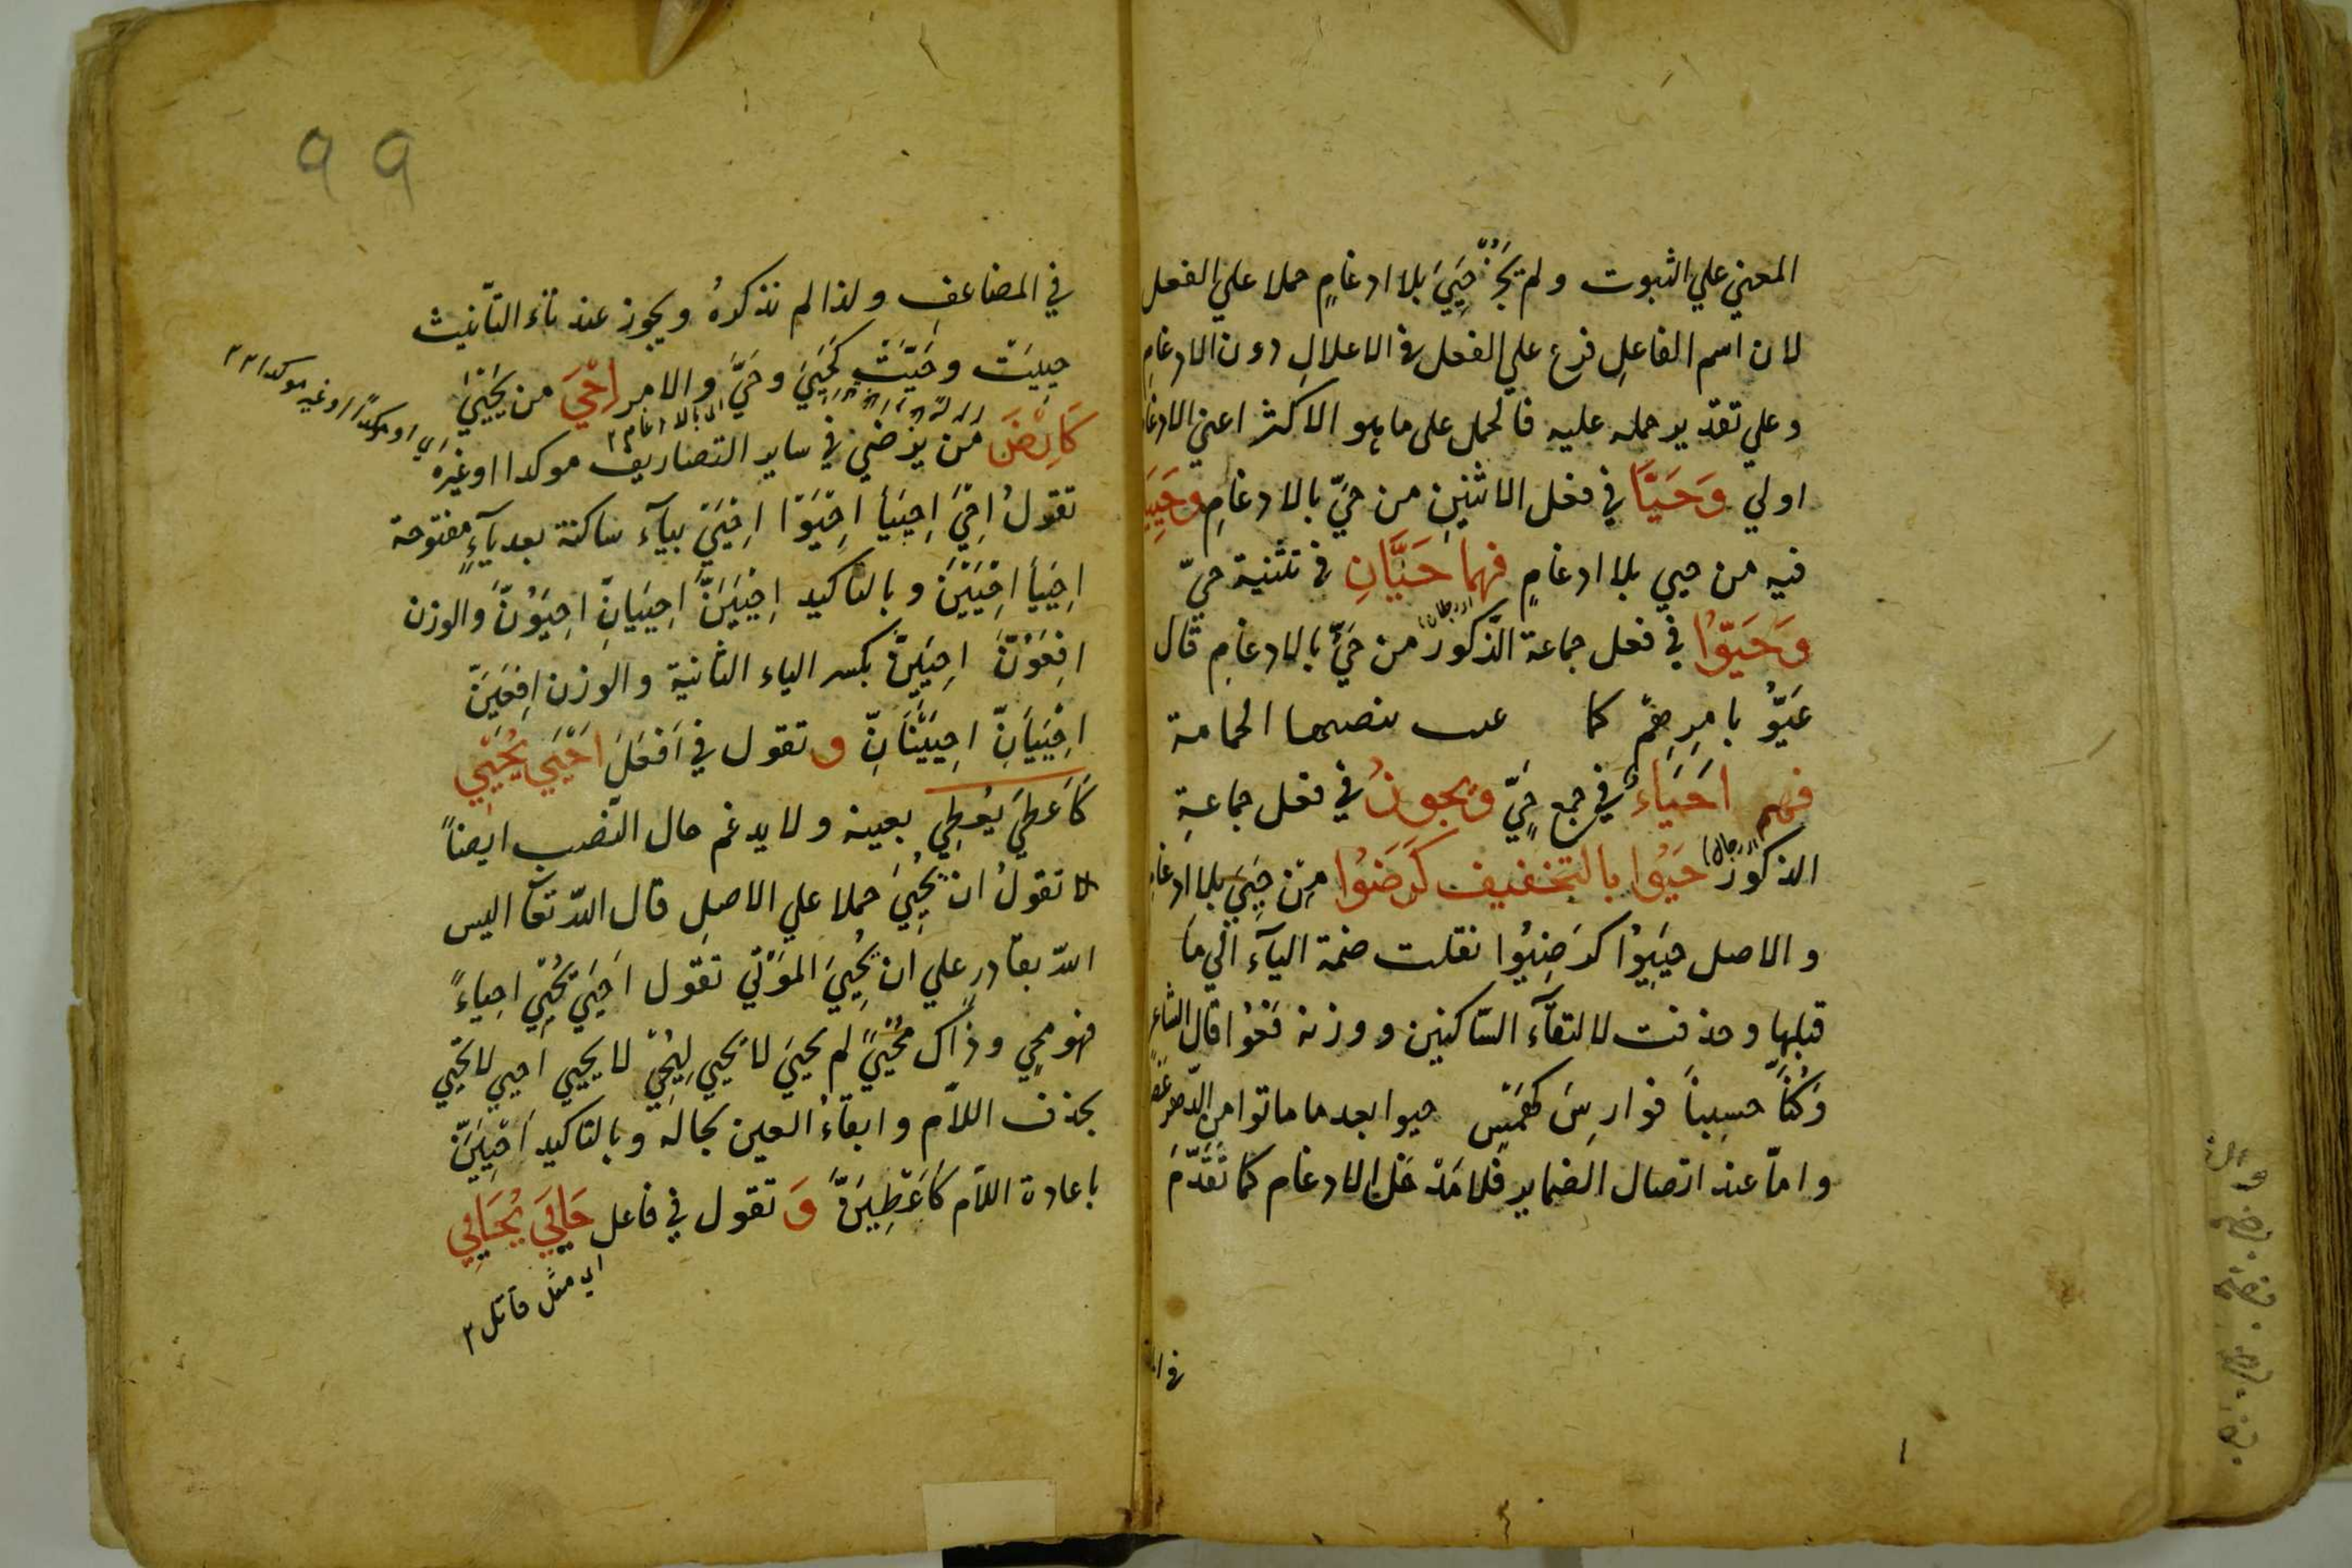 المعني علي الثبوت ولم يَجُزْ حَيِيَ بلا ادغامٍ حملا علي الفعل
لان اسم الفاعلِ فرع علي الفعل في الاعلالِ دون الادغامِ
وعلي تقدير حمله عليه فالحمل على ما هو الاكثر اعني الادغا
اولي وَحَيَّا في فعل الاثنين من حيّ بالادغامِ وحَيِيَا
فيه من حيي بلا ادغامٍ فهما حَيَّانِ في تثنية حيّ
وَحَيّوُا في فعل جماعة الذّكور من حَيَّ بالادغامِ قال
عَيّوُا بامرِهِم كما عيت ببيضتها الحمامة
فهم اَحْيَاءٌ في جمع حَيٍّ ويجوز في فعل جماعةِ
الذكور حَيُوا بالتخفيف كَرَضُوا من حَيِيَ بلا ادغامِ
والاصل حَيِيُوْا كرَضِيُوا نقلت ضمة اليآء الي ما
قبلها وحذفت لالتقآء السّاكنين ووزنه فَعُوْا قال الشاعر
وَكُنَّا حسبنا فوارسَ كهمَسٍ حيوا بعد ما ماتوا من الدّهر
وامّا عند اتصال الضماير فلا مَدْخَلَ للادغام كما تقَدّمَ
في ا
٩٩
في المضاعف ولذا لم نذكرهُ ويجوز عند تآء التّانيث
حييَتْ وحَيَّتْ كَحَيِيَ وحَيَّ والامر اِحْيَ من يَحْيَيْ
كَاِرْضَ من يرْضَي في ساير التصاريف موكدا اوغيره
اي او موكدًا او غير موكدا
تقولُ اِحْيَ اِحْيَيَا اِحْيَوْا اِحْيَيْ بيآء ساكنة بعد يآءٍ مفتوحة
اِحْيَيَا اِحْيَيْنَ وبالتاكيد اِحْيَيَنَّ اِحْيَيَانِّ اِحْيَوُنَّ والوزن
اِفْعَوُنَّ اِحْيَيِنَّ بكسر الياء الثانية والوزن اِفْعَيِنَّ
اِحْيَيَانِّ اِحْيَيْنَانِّ و تقول في اَفْعَلَ اَحْيَي يُحْيِي
كَاَعطَي يُعْطِي بعينه ولا يدغم حال النّصب ايضاً
لا تقولُ ان يُحِيَّ حملا علي الاصلِ قال اللّه تعآ اليس
اللّه بقادرٍ علي ان يُحْيِيَ المَوْتَي تقول اَحْيَي يُحْيِي احياءً
فهو محيٍ وذاك مُحْيًي لم يحيَ لا يحيي لِيُحْيِ لا يحيي احيي لا تحيي
بحذف اللاّم وابقآءُ العين بحاله وبالتاكيد اَحْيِيَنَّ
باعادة اللاّم كَاَعْطِيَنَّ وَ تقول في فاعل حَايَيَ يُحَايِي
اي مثل قاتل